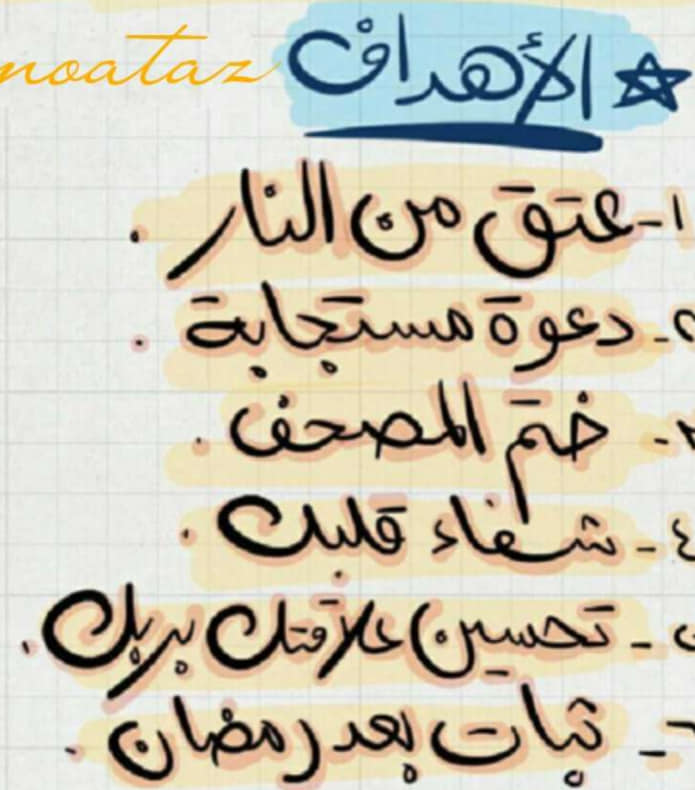 moataz
☆ الأهداف
١-عتق من النار.
- دعوة مستجابة.
- ختم المصحف.
٤- شفاء قلبك.
- تحسين علاقتك بربك.
- ثبات بعد رمضان.